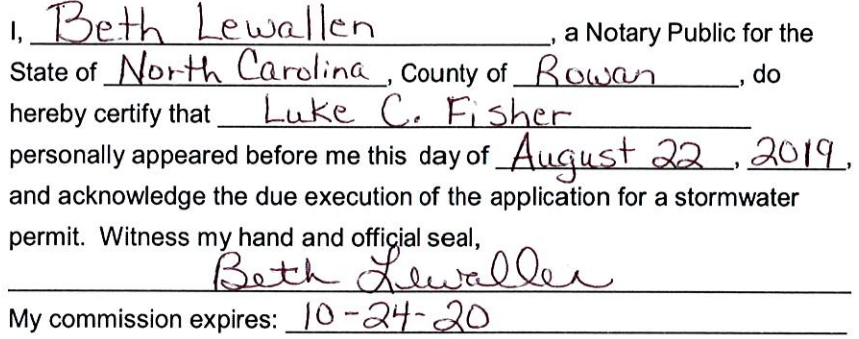 I, Beth Lewallen, a Notary Public for the
State of North Carolina, County of Rowan, do
hereby certify that Luke C. Fisher
personally appeared before me this day of August 22, 2019,
and acknowledge the due execution of the application for a stormwater
permit. Witness my hand and official seal,
Beth Lewallen
My commission expires: 10-24-20